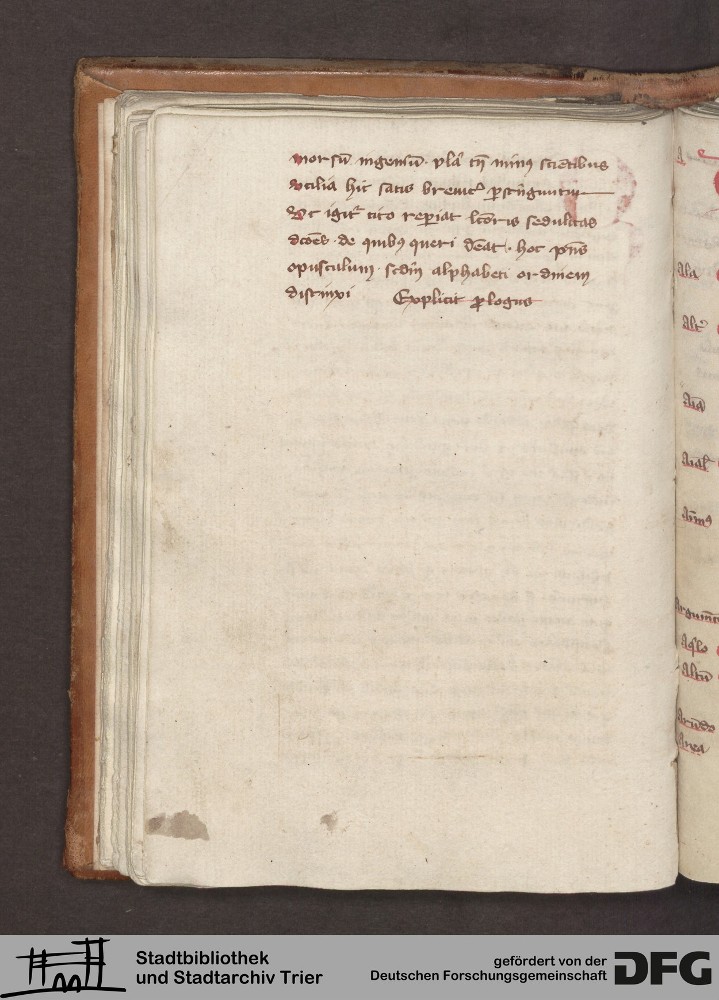 morsū ingeniū. pla᷑ tn̄ minꝰ sciētibus
vtilia hic satis breuit᷑ ꝑstringuntur
Vt igit᷑ cito reꝑiat lc̄oris sedulitas
dcōes. de quibꝰ queri dēat. hoc pn̄s
opusculum. scdm̄ alphabeti ordinem
distinxi Explicit ꝓlogus
A
Ala
Alt᷑
Aīa
Aīal
Aīmꝰ
Argumē
Aq̇lo
Altū
Arūdo
Area
Stadtbibliothek
und Stadtarchiv Trier
gefördert von der
Deutschen Forschungsgemeinschaft
DFG